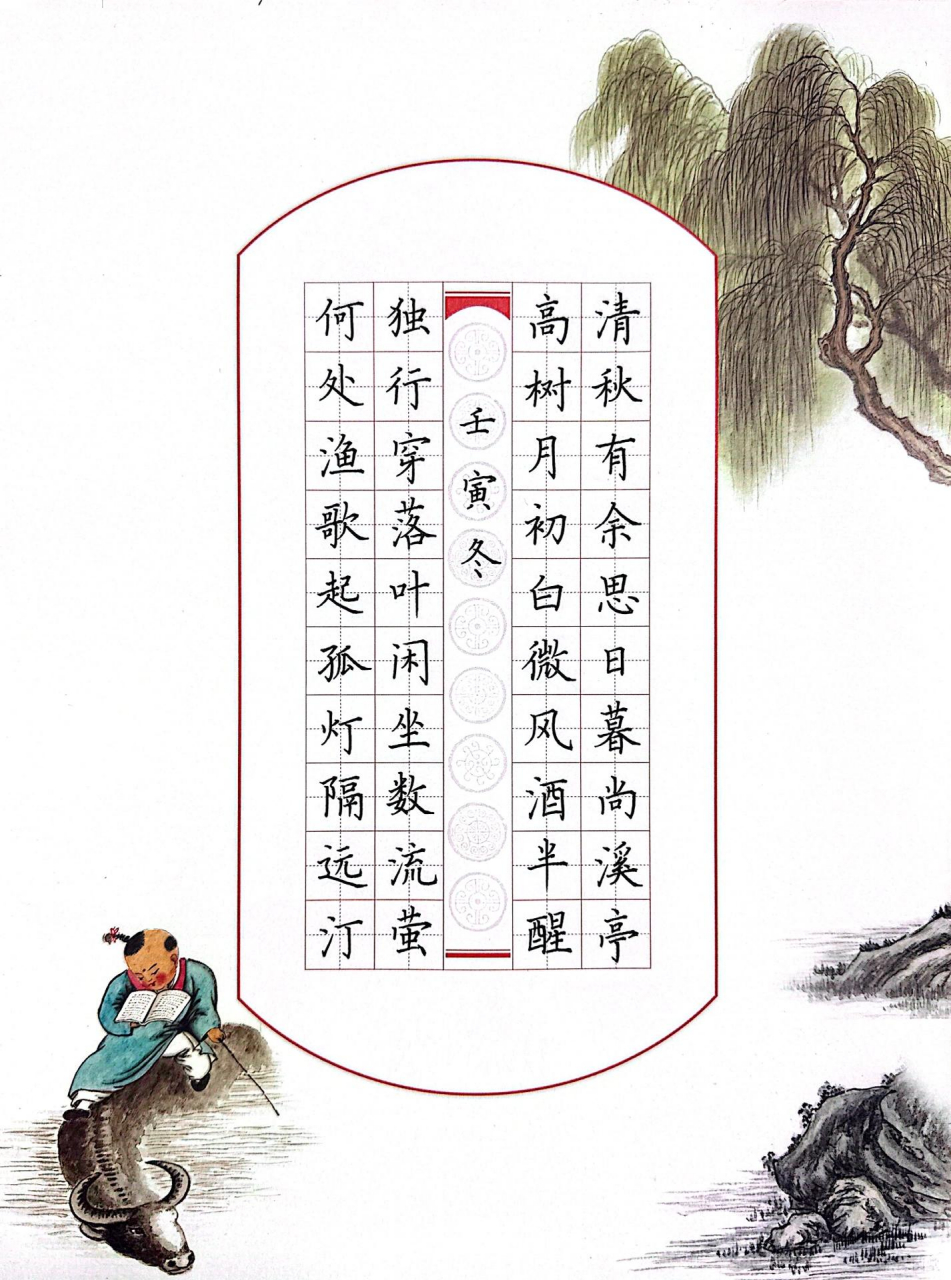 清秋有余思日暮尚溪亭
高树月初白微风酒半醒
壬寅冬
独行穿落叶闲坐数流萤
何处渔歌起孤灯隔远汀